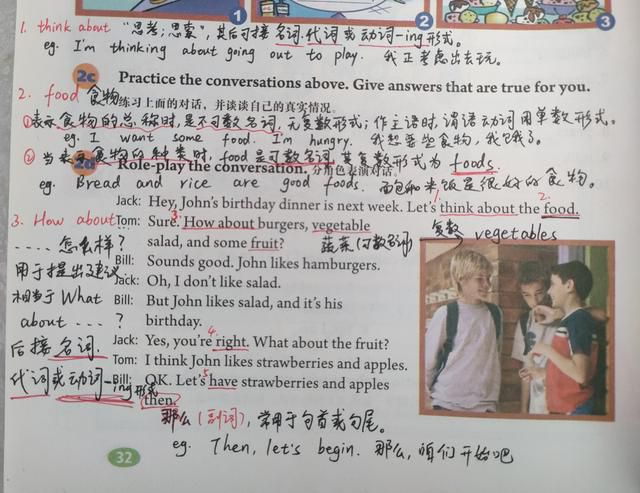 1 2 3
1. think about "思考；思索", 其后可接名词.代词或动词-ing形式。
eg. I'm thinking about going out to play. 我正考虑出去玩。
2c Practice the conversations above. Give answers that are true for you.
练习上面的对话，并谈谈自己的真实情况。
2. food 食物
①表示食物的总称时,是不可数名词,无复数形式;作主语时,谓语动词用单数形式。
eg. I want some food. I'm hungry. 我想要些食物,我饿了。
②当表示食物的种类时,food是可数名词,其复数形式为foods.
2d Role-play the conversation. 分角色表演对话。
eg. Bread and rice are good foods. 面包和米饭是很好的食物。
Jack: Hey, John's birthday dinner is next week. Let's think about the food.
1. 2.
3. How about
.... 怎么样?
用于提出建议
相当于What
about ... ?
后接名词.
代词或动词-ing形式
Tom: Sure. How about burgers, vegetable
3.
salad, and some fruit?
蔬菜(可数名词) 复数 vegetables
Bill: Sounds good. John likes hamburgers.
Jack: Oh, I don't like salad.
Bill: But John likes salad, and it's his
birthday.
Jack: Yes, you're right. What about the fruit?
4.
Tom: I think John likes strawberries and apples.
Bill: OK. Let's have strawberries and apples
5.
then.
那么(副词),常用于句首或句尾。
eg. Then, let's begin. 那么,咱们开始吧
32